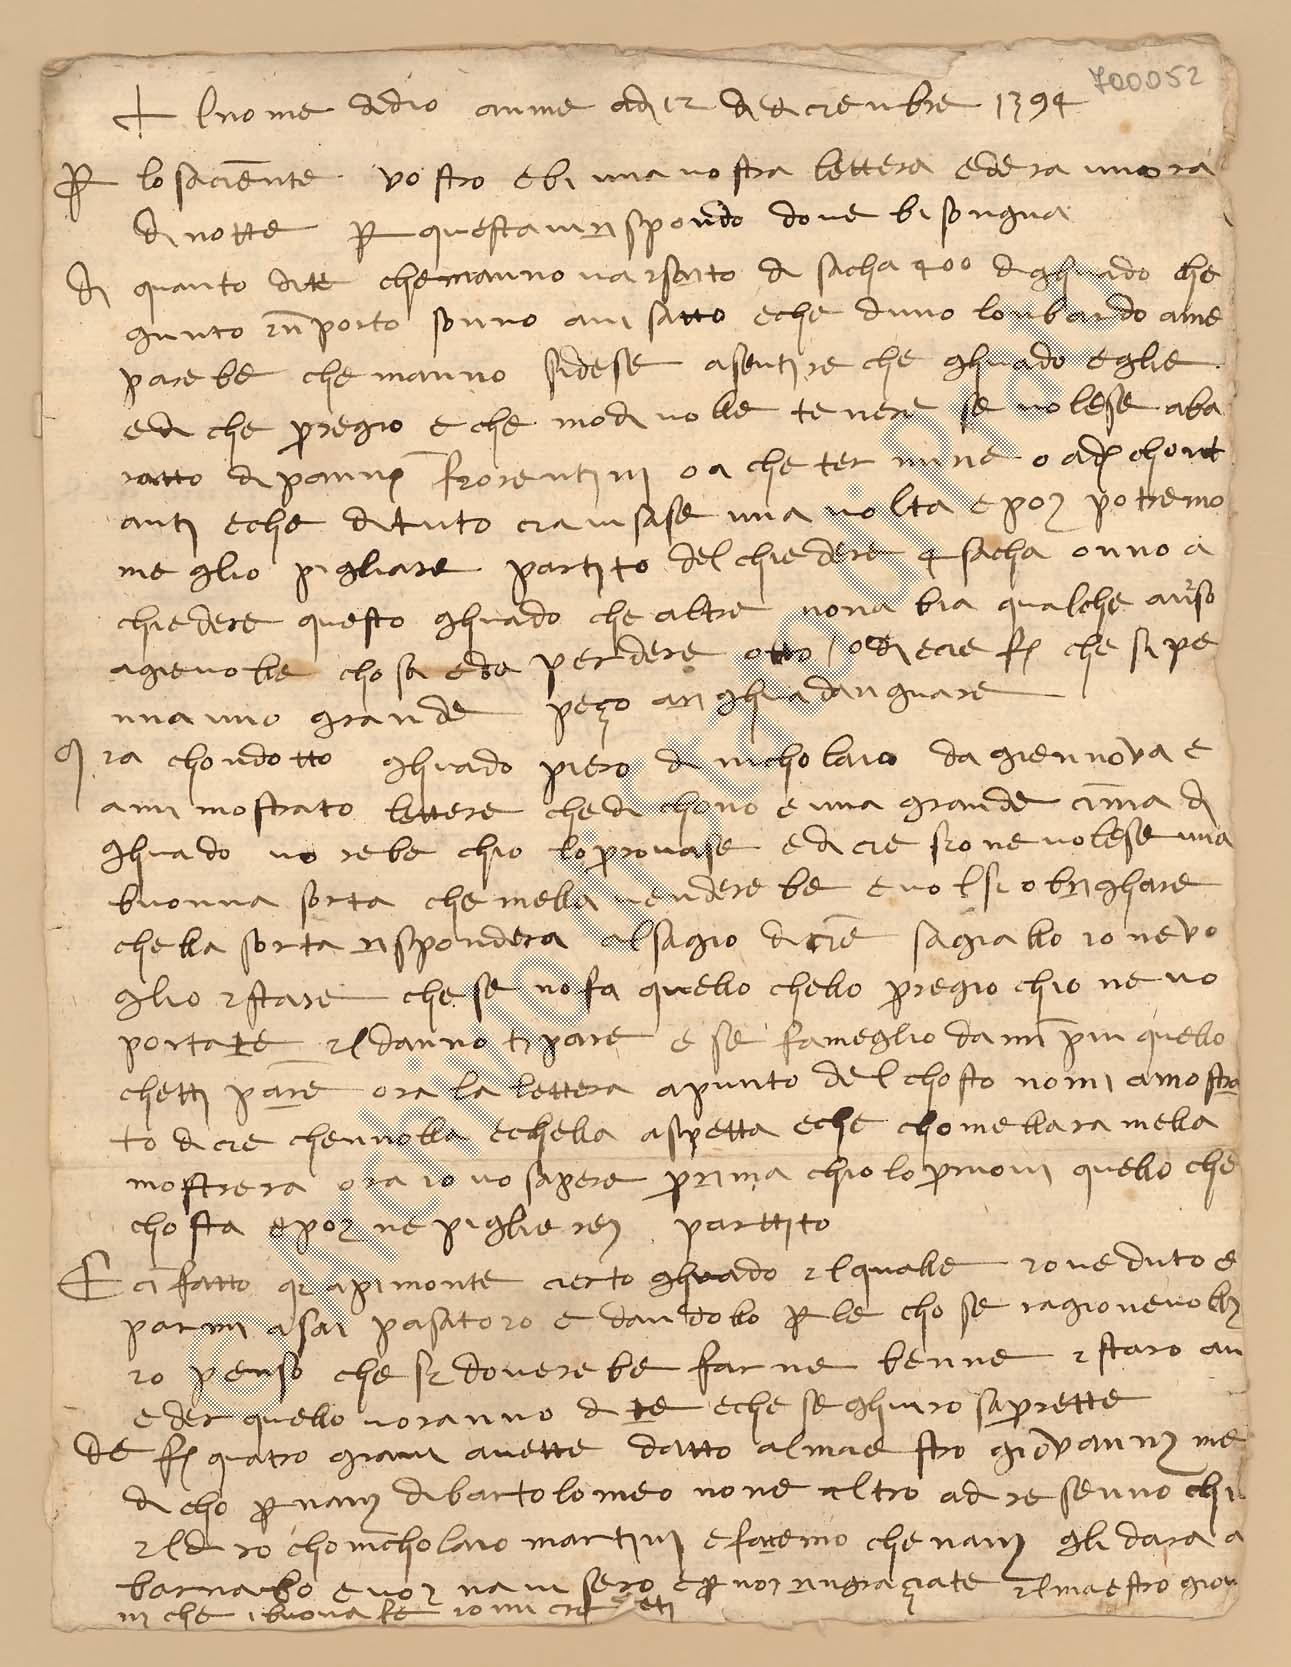 700052
+ Inome didio amme adi 12 di diciembre 1394
Per lo saciente vostro ebi una vostra lettera ed era un ora
di notte per questa vi rispondo dove bisongna
di quanto dite che manno di sacha 400 di ghuado che
gunto in porto sonno avisatto e che duno lonbardo a me
parebe che manno sidese a sentire che ghuado eglie
e di che pregio e che modi volle tenere se volese aba
ratto di panni fiorentini o a che termine o adi chont
anti e che dituto ciavisase una volta e poi potremo
meglio pigliare partito del chiedere 4 sacha o uno a
chiedere questo ghuado che altre nonabia qualche aviso
agievolle chosa ede perdere otto o diecie fi che si pe
nnanno grande pezo a righuadanguare
Ora chondotto ghuado piero di nicholaio da giennova e
ami mostrato lettere che dichono e una grande cima di
ghuado vorebe chio lo provase e dicie sio ne volese una
buonna sorta che mella venderebe e volsi obrighare
chella sorta risponderà al sagio dicie sagiallo io ne vo
glio istare che se nofa quello chello pregio chio ne vo
portate il danno ti pare e se fameglio dammi piu quello
chetti pare ora la lettera apunto del chosto nomi amostra
to dicie chennolla e chella aspetta e che chomellara mella
mostrera ora io vo sapere prima chio lo pruovi quello che
chosta e poi ne piglierei parttito
E ci fatto qi apimonte cierto ghuado il qualle io veduto e
parmi asai pasatoro e dandollo per le chose ragionevolli
io penso che si doverebe farne benne istaro au
eder quello voranno di te e che seghuiro saprette
de fi quatro gravi avette datto al maestro giovanni me
dicho per nani di bartolomeo none altro adire senno chi
il diro cho nicholaio martini e faremo che nani gli dara a
barnabo e voi navisero e per noi ringraziate il maestro giov
ni che